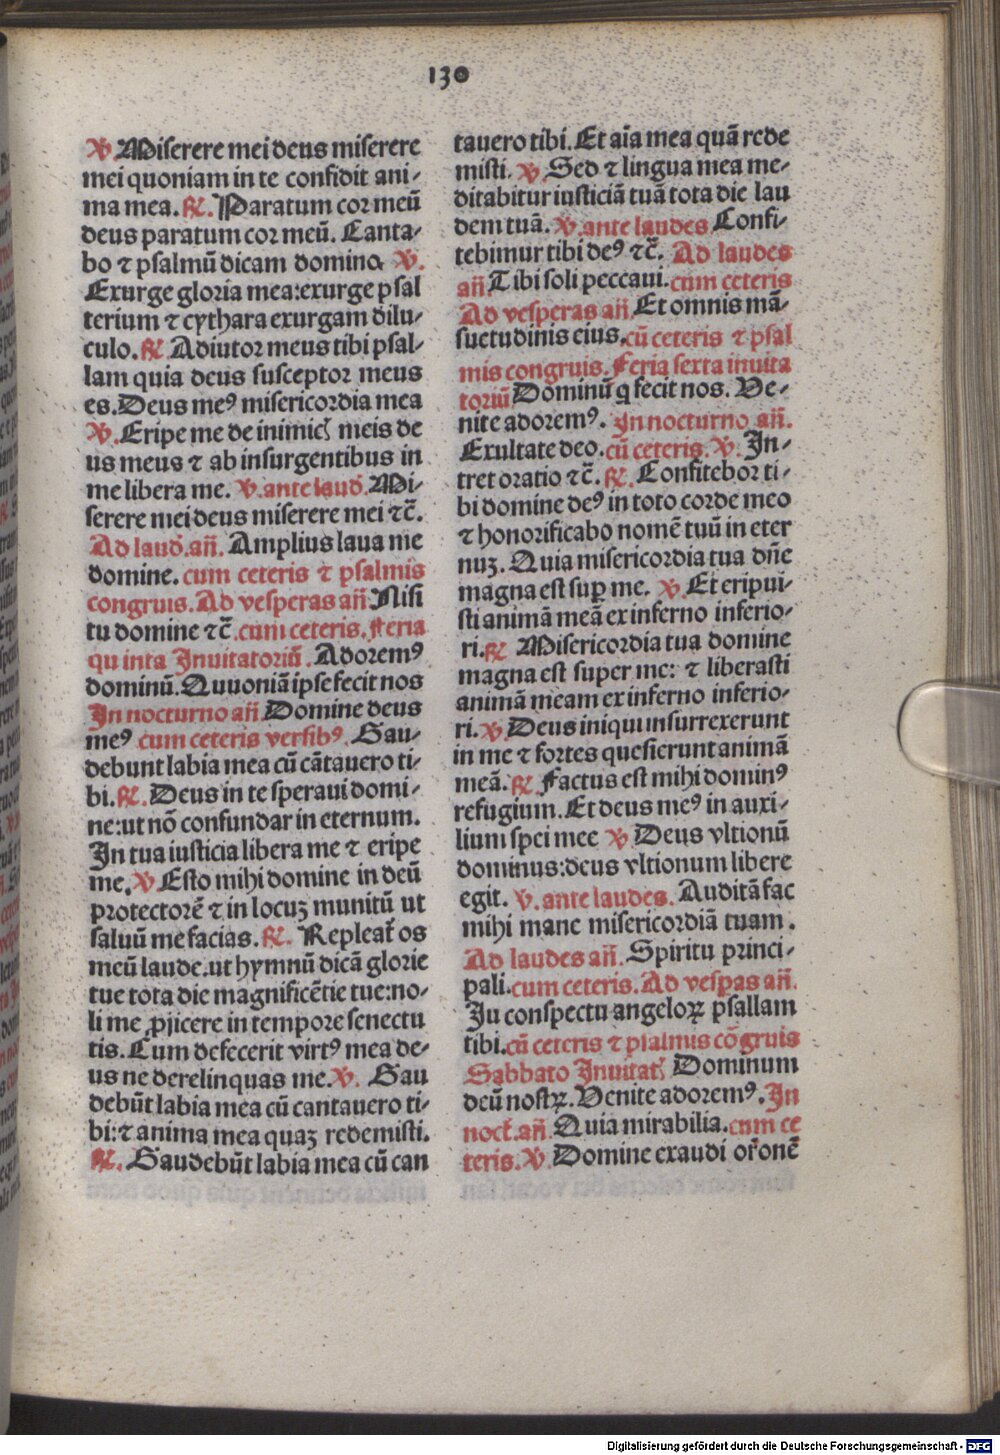 130
℣. Miserere mei deus miserere
mei quoniam in te confidit ani-
ma mea. ℟. Paratum cor meū
deus paratum cor meū. Canta-
bo ⁊ psalmū dicam domino ℣.
Exurge gloria mea:exurge psal
terium ⁊ cythara exurgam dilu-
culo. ℟. Adiutor meus tibi psal-
lam quia deus susceptor meus
es. Deus meꝰ misericordia mea
℣. Eripe me de inimicꝭ meis de
us meus ⁊ ab insurgentibus in
me libera me. ℣. ante laud̄. Mi-
serere mei deus miserere mei ⁊c̄.
Ad laud̄. añ. Amplius laua me
domine. cum ceteris ⁊ psalmis
congruis. Ad vesperas añ Nisi
tu domine ⁊c̄. cum ceteris. Feria
quinta Inuitatoriū. Adoremꝰ
dominū. Quuoniā ipse fecit nos
In nocturno añ Domine deus
meꝰ cum ceteris versibꝰ. Gau-
debunt labia mea cū cātauero ti-
bi. ℟. Deus in te speraui domi-
ne:ut nō confundar in eternum.
In tua iusticia libera me ⁊ eripe
me. ℣ Esto mihi domine in deū
protectorē ⁊ in locuꝫ munitū ut
saluū me facias. ℟. Repleat̄ os
meū laude.ut hymnū dicā glorie
tue tota die magnificētie tue:no-
li me ꝓijcere in tempore senectu
tis. Cum defecerit virtꝰ mea de-
us ne derelinquas me. ℣. Gau
debūt labia mea cū cantauero ti-
bi:⁊ anima mea quaꝫ redemisti.
℟. Gaudebūt labia mea cū can
tauero tibi. Et aīa mea quā rede
misti. ℣. Sed ⁊ lingua mea me-
ditabitur iusticiā tuā tota die lau
dem tuā. ℣. ante laudes Confi-
tebimur tibi deꝰ ⁊c̄. Ad laudes
añ. Tibi soli peccaui. cum ceteris
Ad vesperas añ Et omnis mā-
suetudinis eius. cū ceteris ⁊ psal
mis congruis. Feria sexta inuita
toriū Dominū q fecit nos. Ve-
nite adoremꝰ. In nocturno añ.
Exultate deo. cū ceteris. ℣. In-
tret oratio ⁊c̄. ℟. Confitebor ti-
bi domine deꝰ in toto corde meo
⁊ honorificabo nomē tuū in eter
nuꝫ. Quia misericordia tua dn̄e
magna est suꝑ me. ℣. Et eripui-
sti animā meā ex inferno inferio-
ri. ℟. Misericordia tua domine
magna est super me: ⁊ liberasti
animā meam ex inferno inferio-
ri. ℣. Deus iniqui insurrexerunt
in me ⁊ fortes quesierunt animā
meā. ℟. Factus est mihi dominꝰ
refugium. Et deus meꝰ in auxi-
lium spei mee ℣. Deus vltionū
dominus:deus vltionum libere
egit. ℣. ante laudes. Auditā fac
mihi mane misericordiā tuam.
Ad laudes añ. Spiritu princi-
pali. cum ceteris. Ad vesꝑas añ.
Iu conspectu angeloꝝ psallam
tibi. cū ceteris ⁊ psalmis cōgruis
Sabbato Inuitat̄ Dominum
deū nostꝝ. Venite adoremꝰ. In
noct̄. añ. Quia mirabilia. cum ce
teris. ℣. Domine exaudi or̄onē
Digitalisierung gefördert durch die Deutsche Forschungsgemeinschaft - DFG